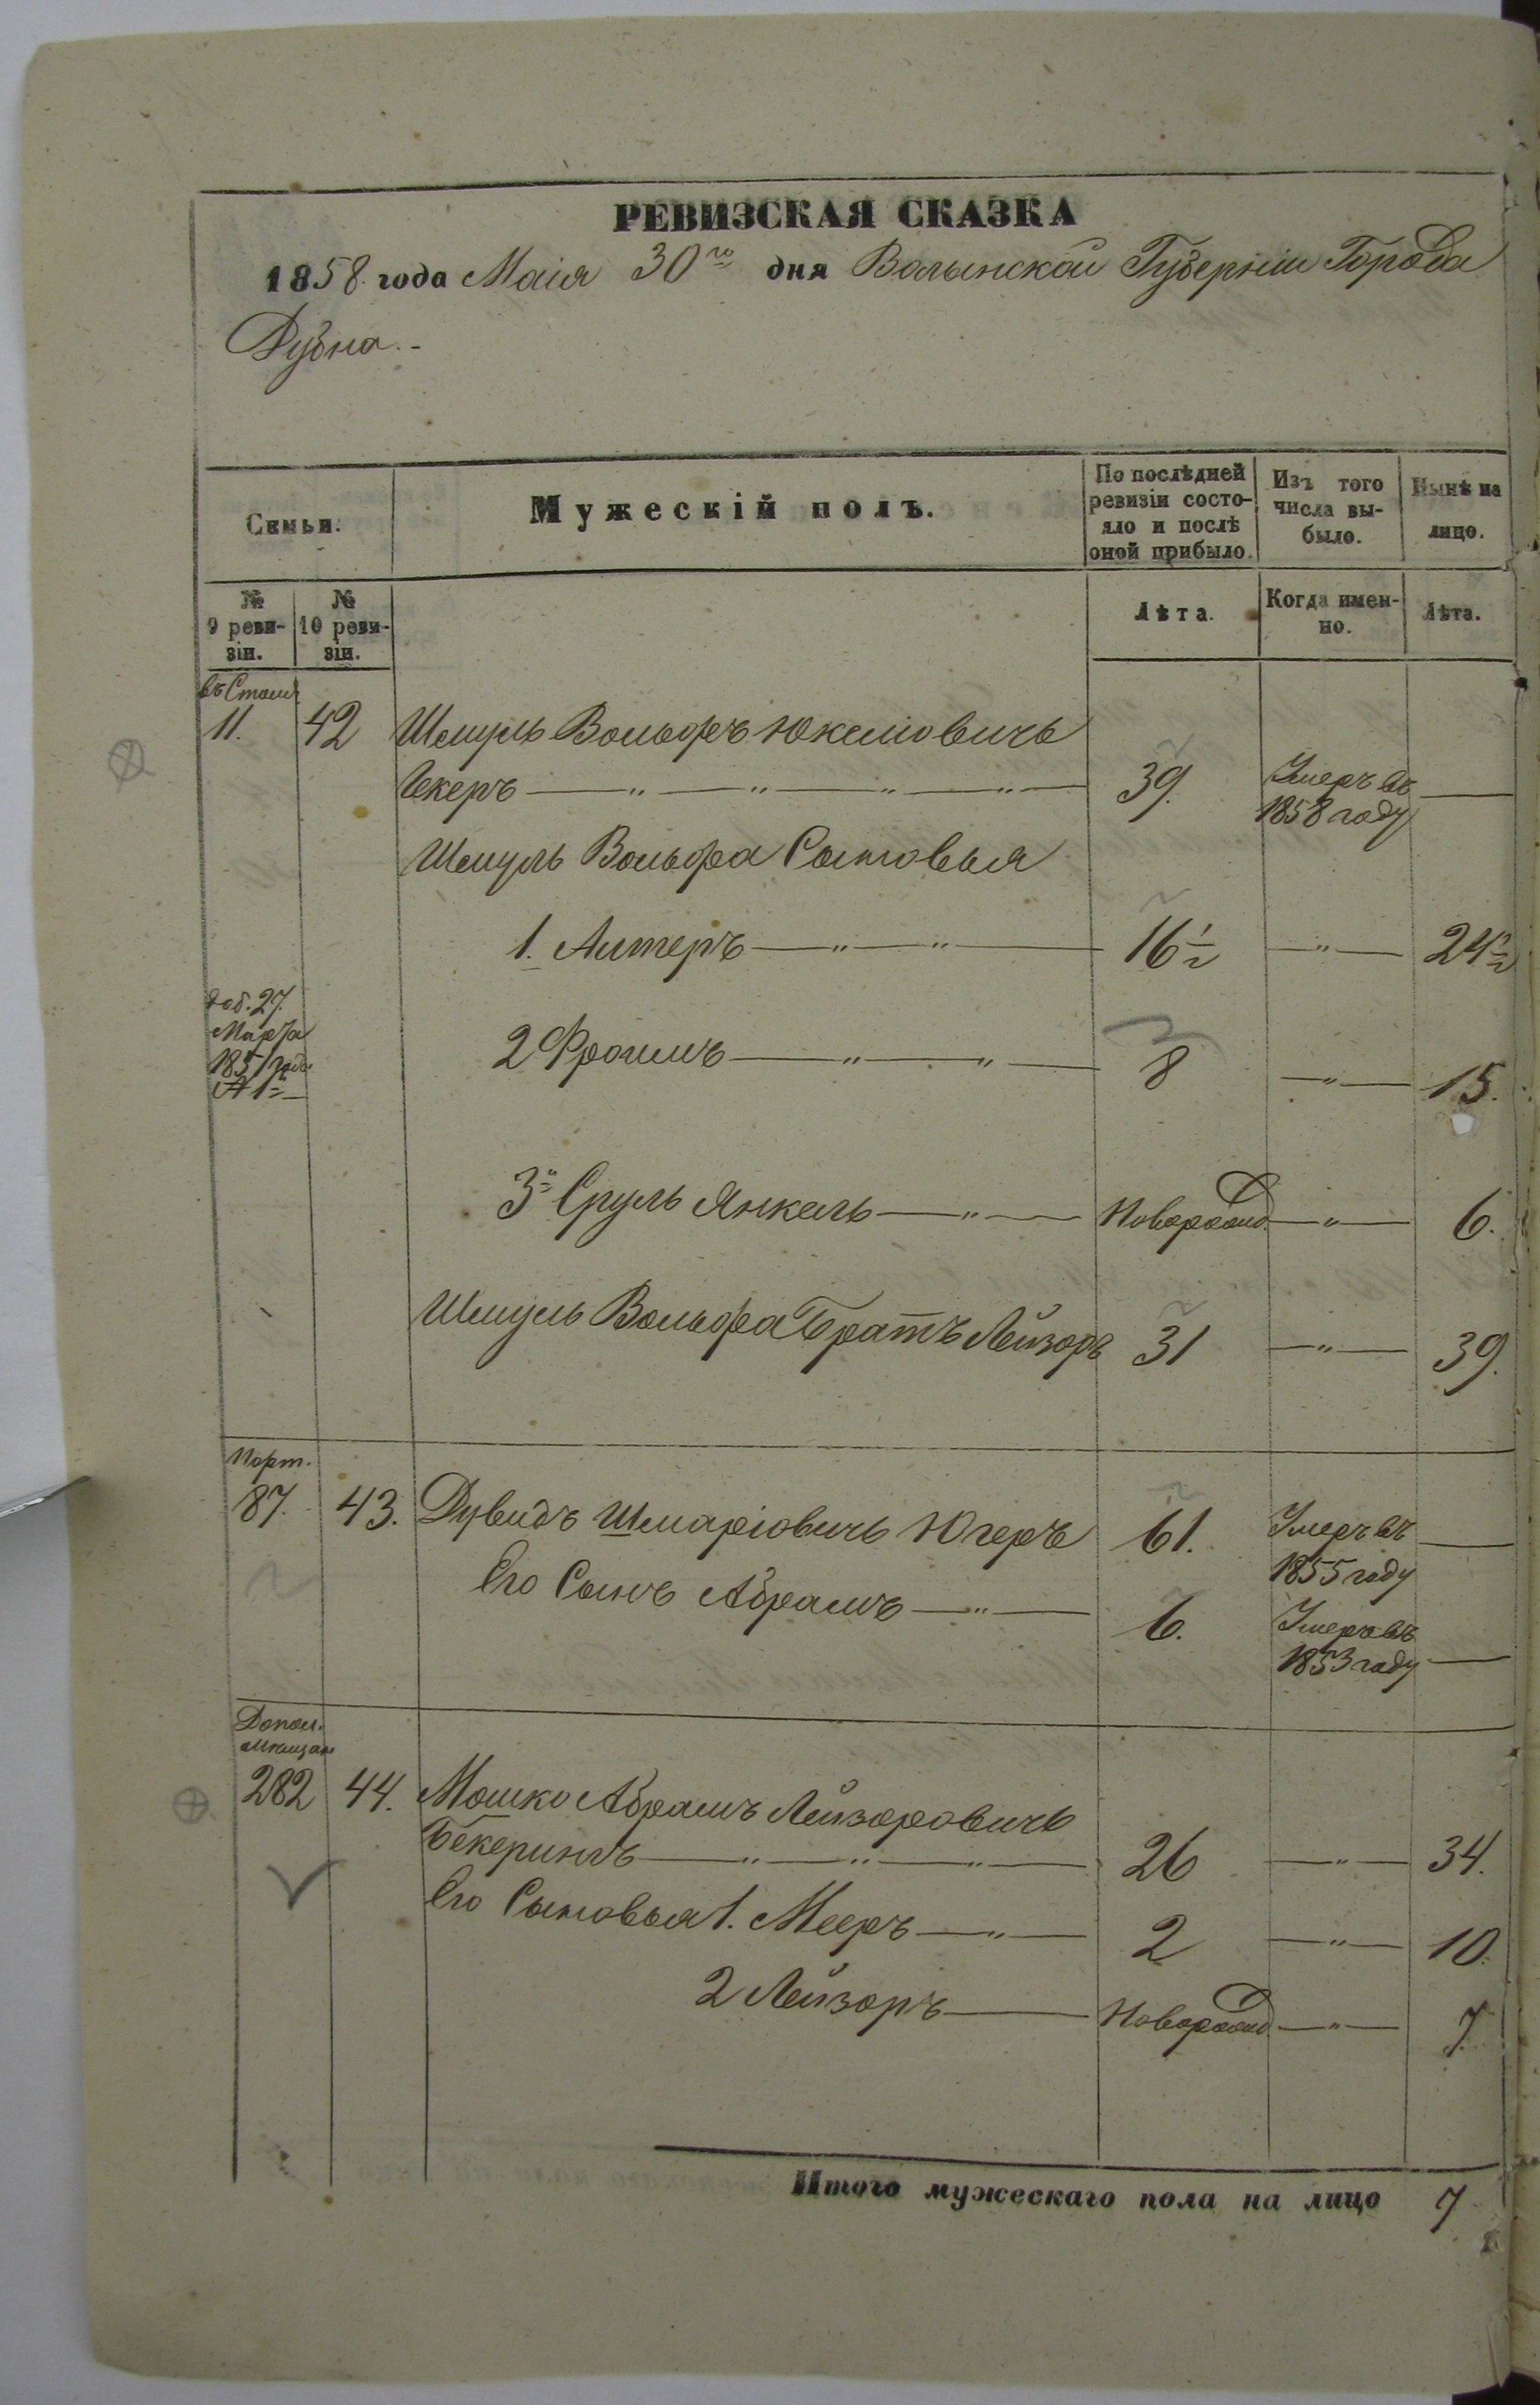 РЕВИЗСКАЯ СКАЗКА
1858 года Маія 30го дня Волынской Губерніи Города
Дубна.-
Семьи.
Мужескій полъ.
По послѣдней ревизіи состо-
яло и послѣ оной прибыло.
Изъ того числа вы-
было.
Нынѣ на лицо.
№ 9 реви-
зіи.
№ 10 реви-
зіи.
Лѣта.
Когда имен-
но.
Лѣта.
11. 42 Шмуль Вольфъ Юкелiовичь
— " — " — " — " — 39. Умеръ въ 1858 году —
Шмуль Вольфа Сыновья
1. Алтеръ — " — " — 16½ — " — 24½
27. Марта 1851 года
2 Фроимъ — " — " — 8 — " — 15.
3й Сруль Янкель — " — Новорожд — " — 6.
Шмуль Вольфа Братъ Лейзоръ 31 — " — 39.
Порт.
87. 43. Дувидъ Шмаріовичь Югеръ 61. Умеръ въ 1855 году —
Его Сынъ Абрамъ — " — 6. Умеръ въ 1853 году —
Допол.
282 44. Мошко Абрамъ Лейзоровичь
Бекерингъ — " — " — " — 26 — " — 34.
Его Сыновья 1. Мееръ — " — 2 — " — 10.
2 Лейзоръ — Новорожд — " — 7.
Итого мужескаго пола на лицо 7